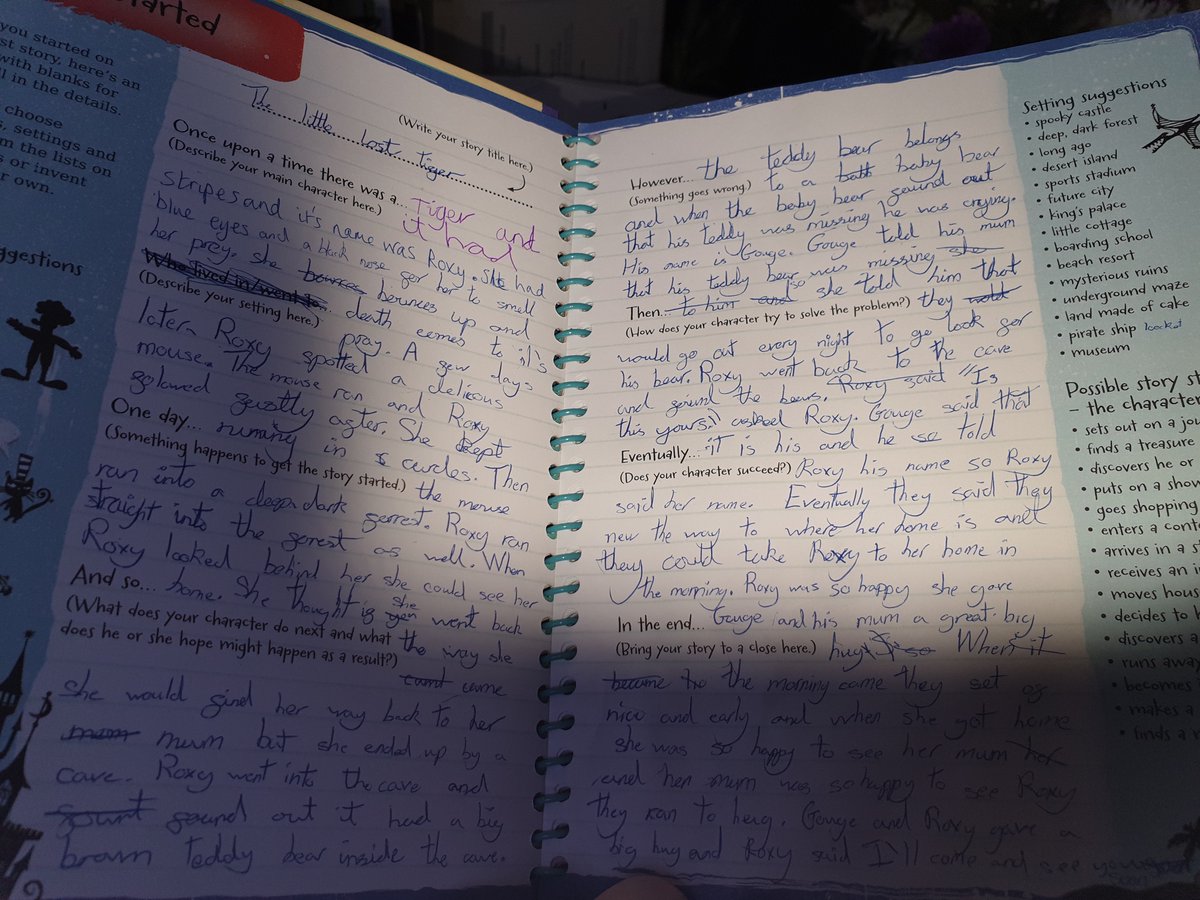 tarted
you started on
st story, here's an
with blanks for
ll in the details.
choose
s, settings and
m the lists on
s or invent
r own.
ggestions
The little lost tiger
(Write your story title here.)
Once upon a time there was a... Tiger and
(Describe your main character here.) it had
stripes and it's name was Roxy. She had
blue eyes and a black nose ger her to smell
her prey. She bounces bounces up and
Who lived in/went to... death comes to it's
(Describe your setting here.) pray. A gew days
later Roxy spotted a delicous
mouse. The mouse ran and Roxy
golowed gastly agter. She kept
One day... running in circles. Then
(Something happens to get the story started.) the mouse
ran into a deep dark gorrest. Roxy ran
straight into the gorrest as well. When
Roxy looked behind her she could see her
And so... home. She thought ig she went back
(What does your character do next and what the way she
does he or she hope might happen as a result?) came
she would gind her way back to her
mum mum but she ended up by a
cave. Roxy went into the cave and
gound out it had a big
brown teddy bear inside the cave.
However... the teddy bear belongs
(Something goes wrong.) to a baby bear
and when the baby bear gound out
that his teddy was missing he was crying.
His name is Gouge. Gouge told his mum
that his teddy bear was missing she
Then... to him and so she told him that
(How does your character try to solve the problem?) they
would go out every night to go look gor
his bear. Roxy went back to the cave
and gound the bears. Roxy said "Is
this yours" asked Roxy. Gouge said that
Eventually... it is his and he told
(Does your character succeed?) Roxy his name so Roxy
said her name. Eventually they said they
new the way to where her home is and
they could take Roxy to her home in
the morning. Roxy was so happy she gave
In the end... Gouge and his mum a great big
(Bring your story to a close here.) hug When it
became the morning came they set og
nice and early and when she got home
she was so happy to see her mum her
and her mum was so happy to see Roxy
they ran to hug. Gouge and Roxy gave a
big hug and Roxy said I'll come and see you
Setting suggestions
• spooky castle
• deep, dark forest
• long ago
• desert island
• sports stadium
• future city
• king's palace
• little cottage
• boarding school
• beach resort
• mysterious ruins
• underground maze
• land made of cake
• pirate ship
• museum
Possible story st
– the character
• sets out on a jou
• finds a treasure
• discovers he or
• puts on a show
• goes shopping
• enters a cont
• arrives in a s
• receives an i
• moves hous
• decides to
• discovers a
• runs away
• becomes
• makes a
• finds a